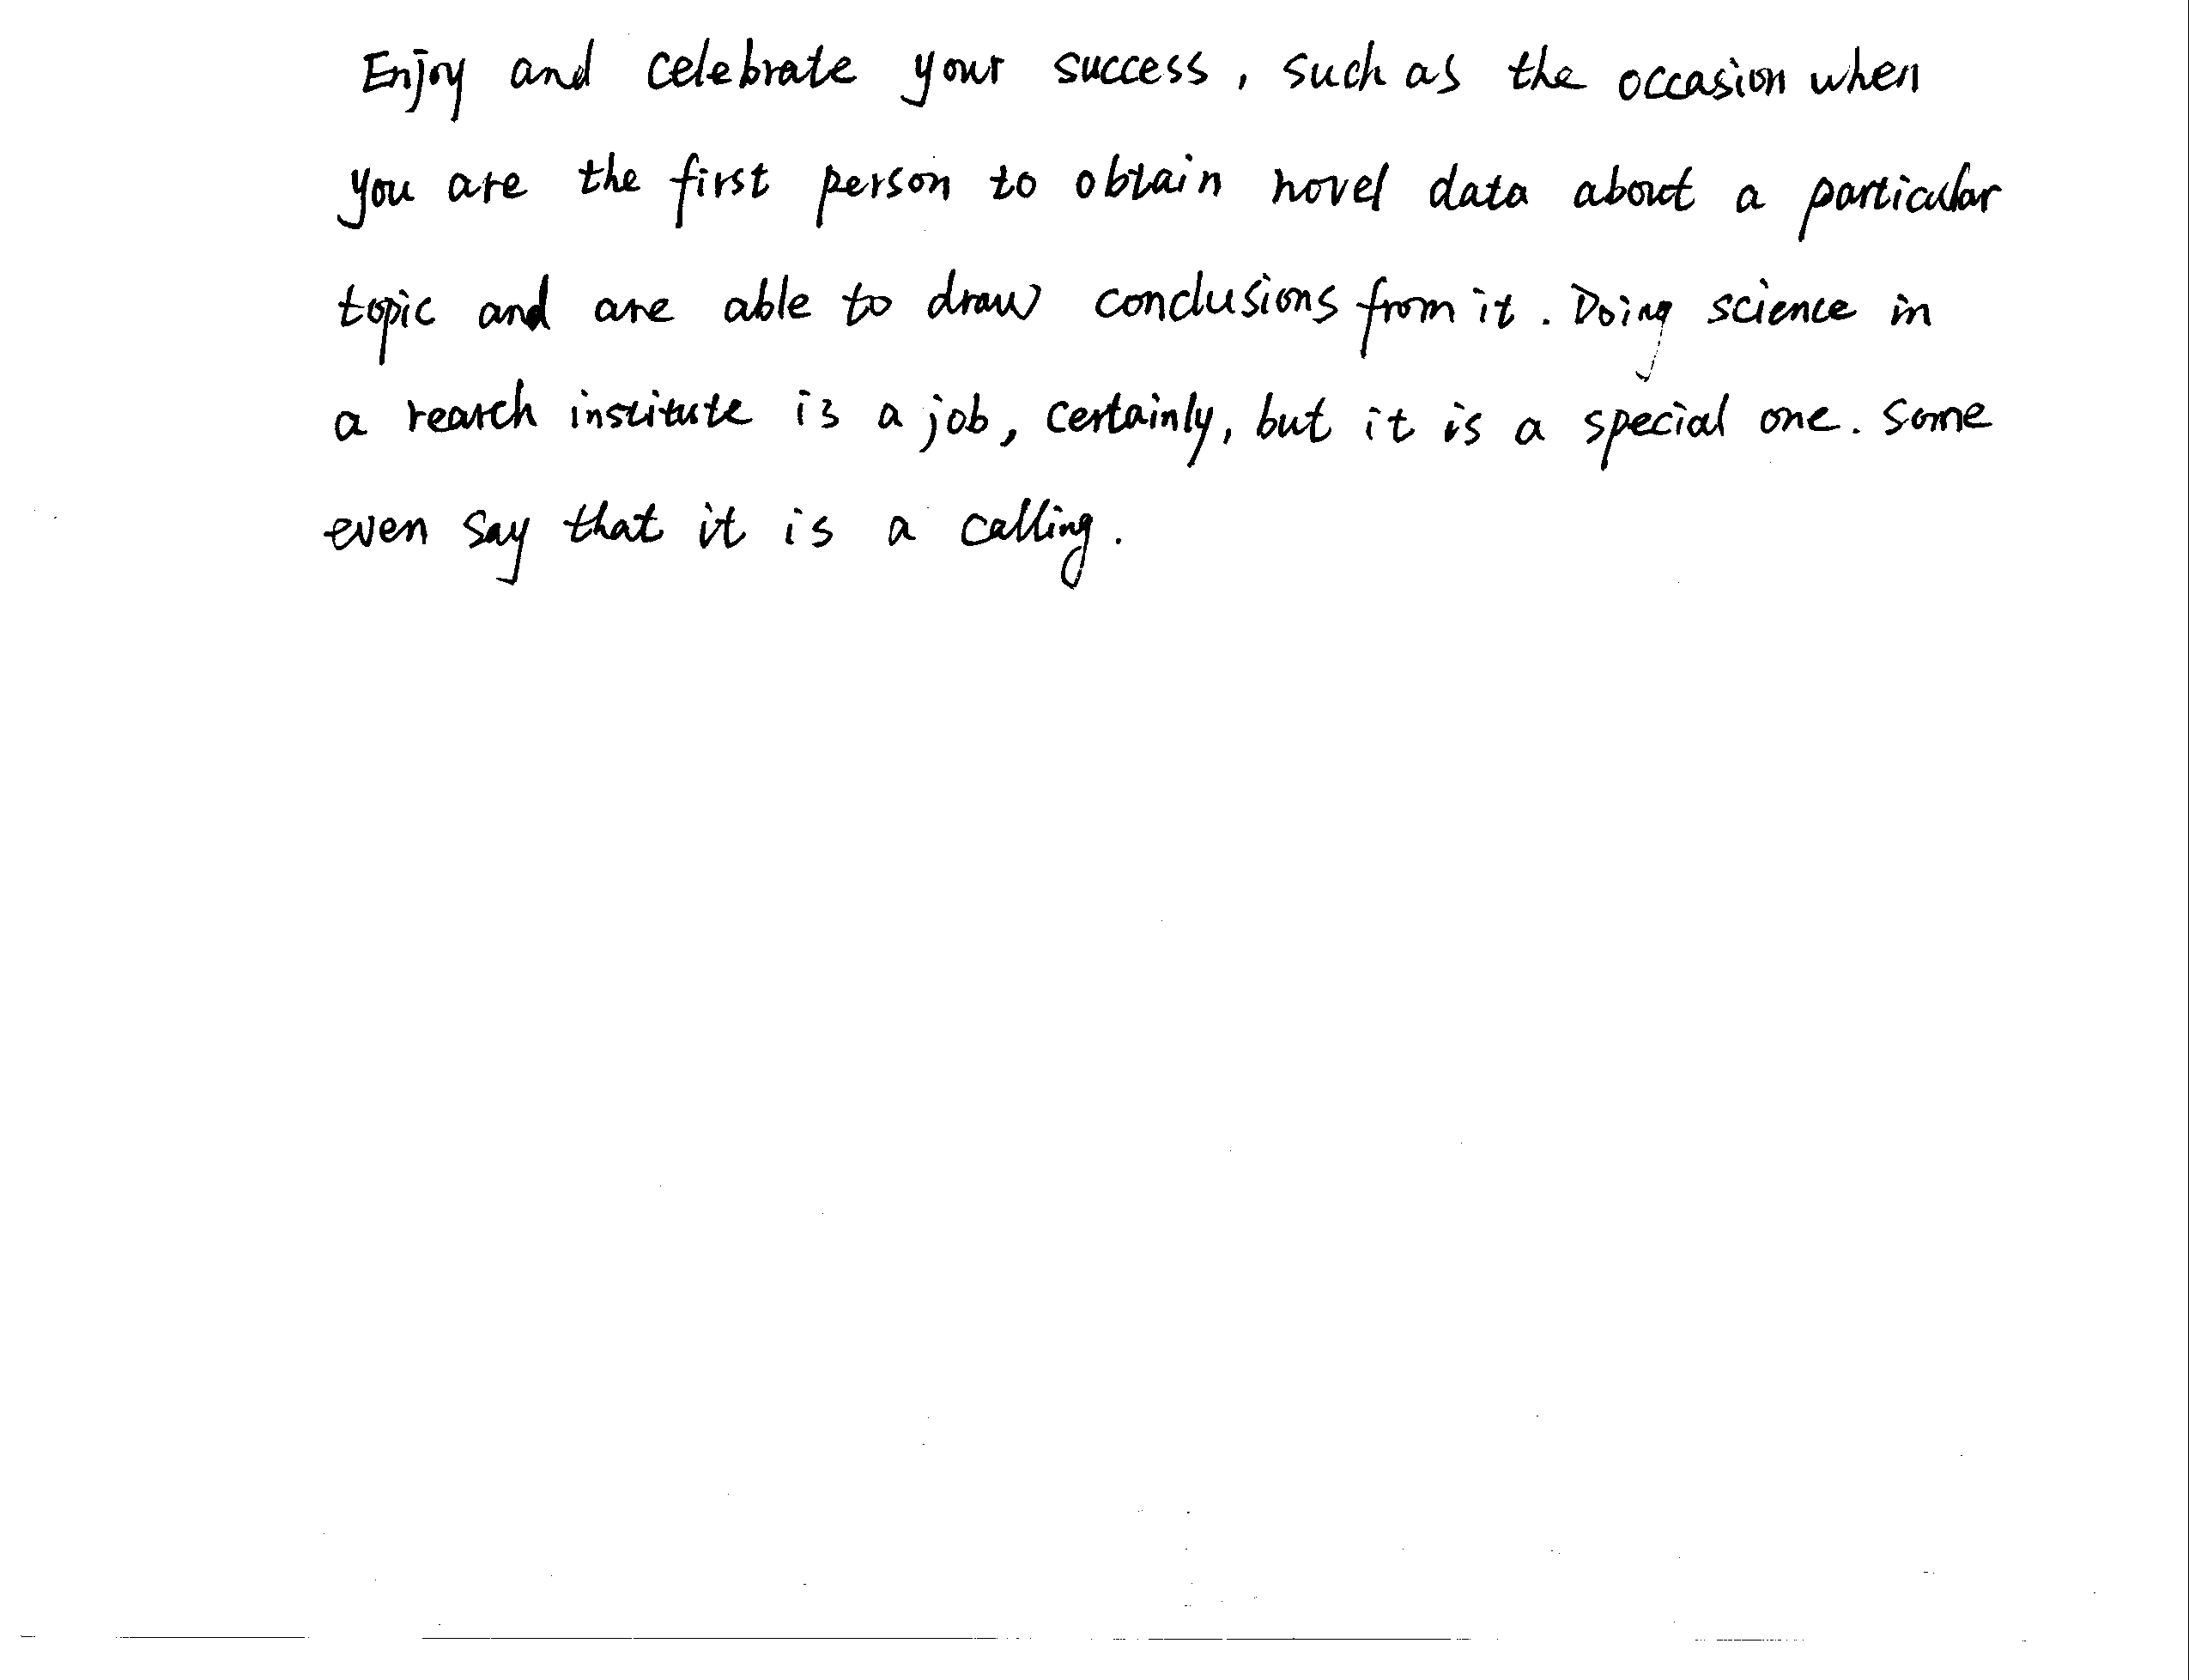 Enjoy and celebrate your success, such as the occasion when
you are the first person to obtain novel data about a particular
topic and are able to draw conclusions from it. Doing science in
a rearch institute is a job, certainly, but it is a special one. Some
even say that it is a calling.